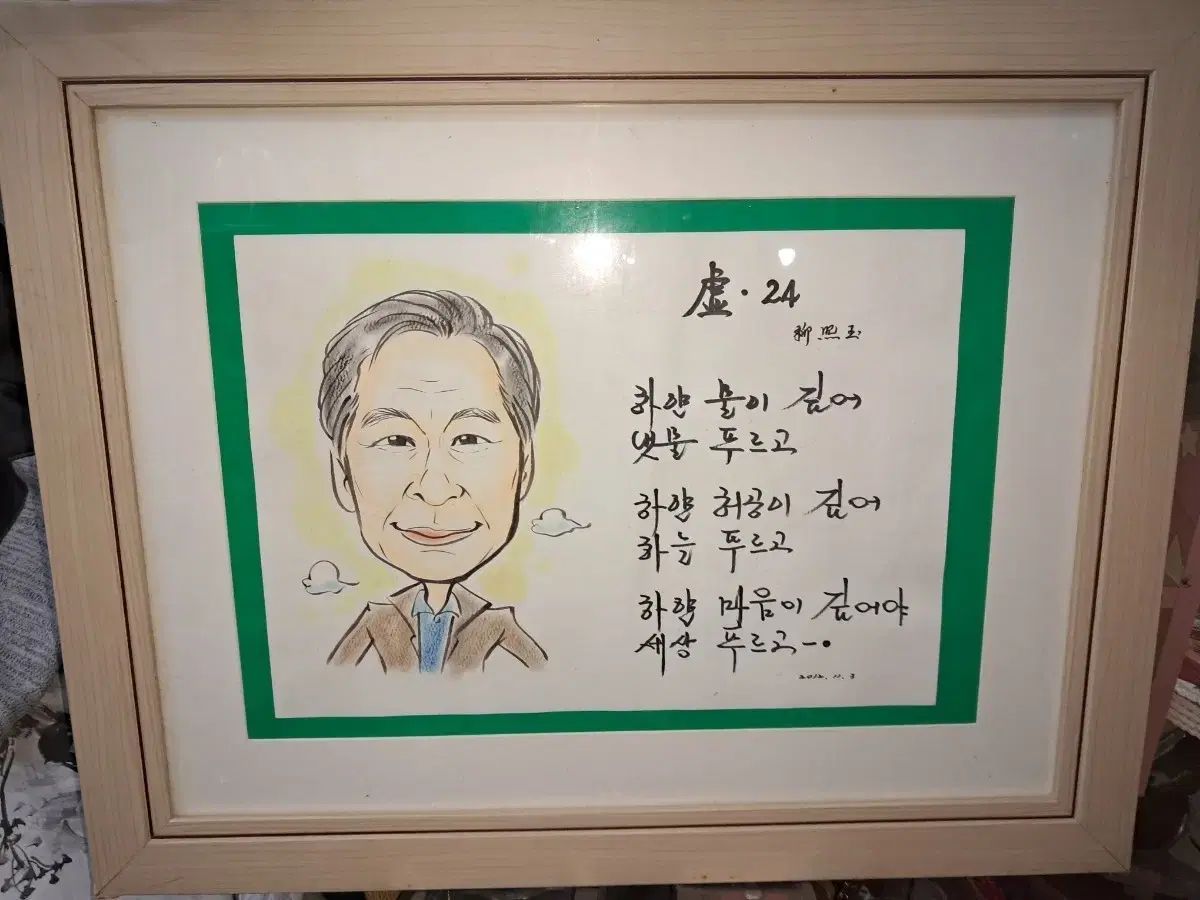 虛·24
柳熙玉
하얀 물이 깊어
냇물 푸르고
하얀 허공이 깊어
하늘 푸르고
하얀 마음이 깊어야
세상 푸르고─·
2012. 11. 3